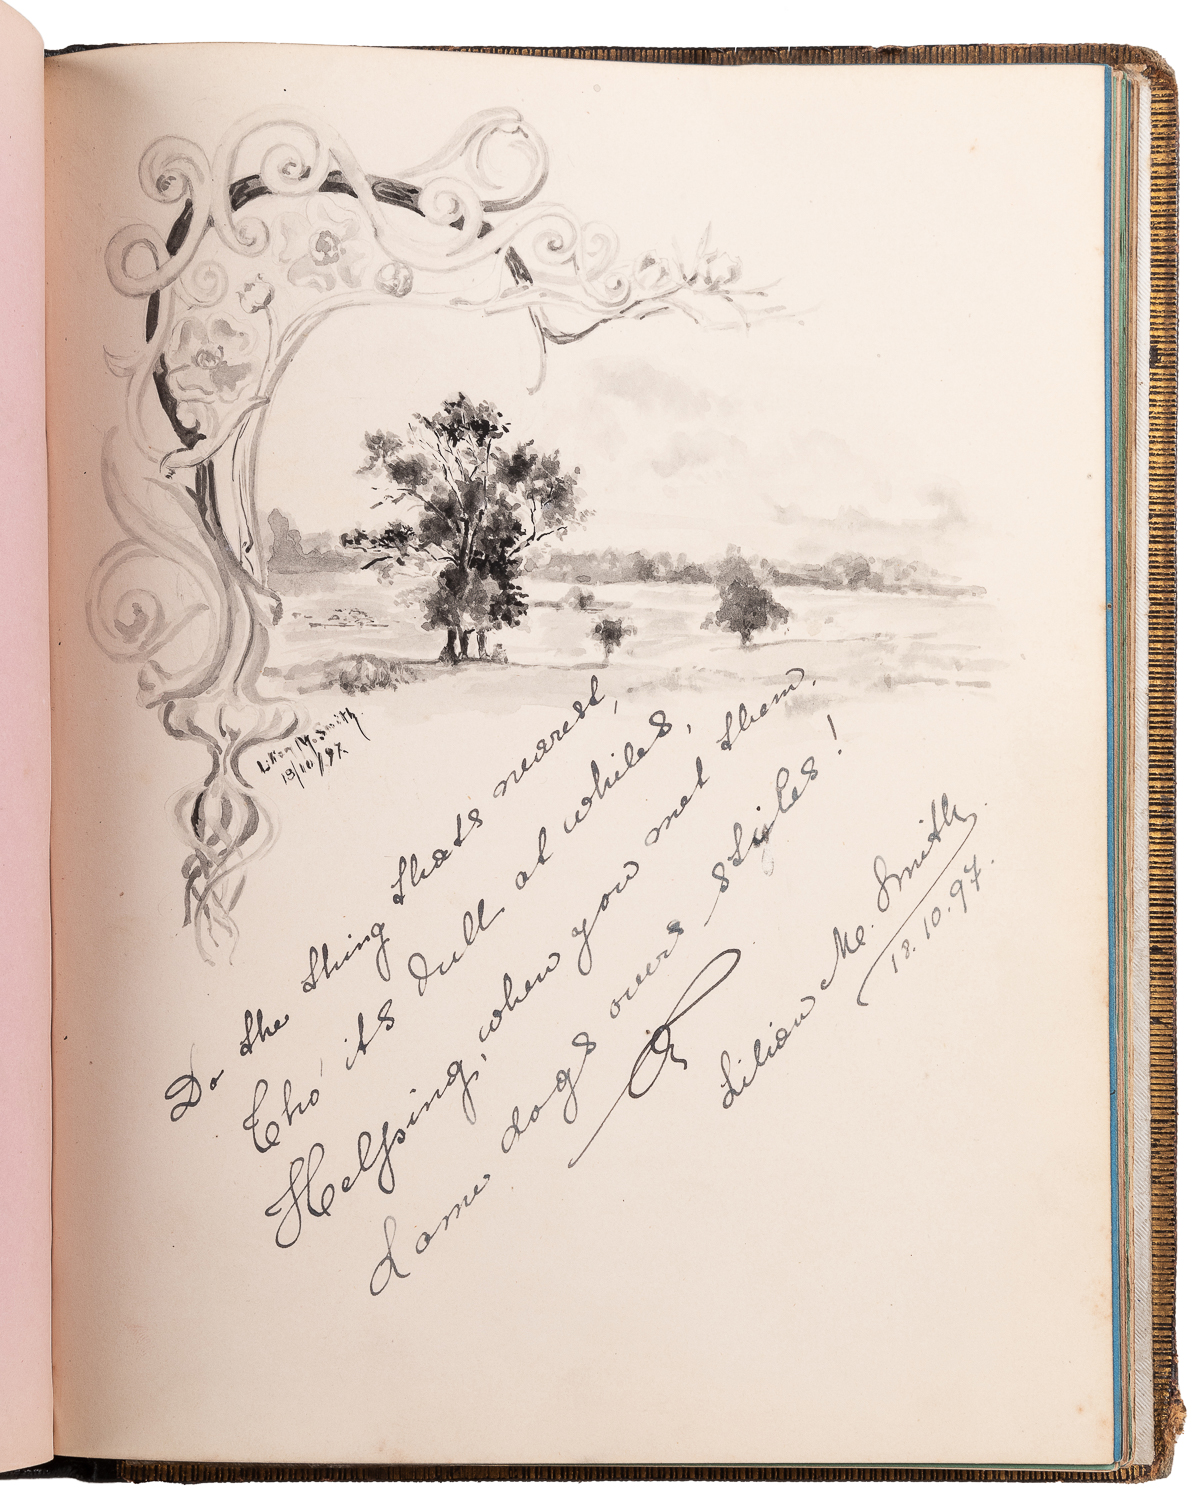 Lilian M. Smith.
18/10/97.
Do the thing thats nearest,
Tho' its dull at whiles,
Helping, when you met them,
Lame dogs over stiles!
Lilian Me. Smith.
18.10.97.